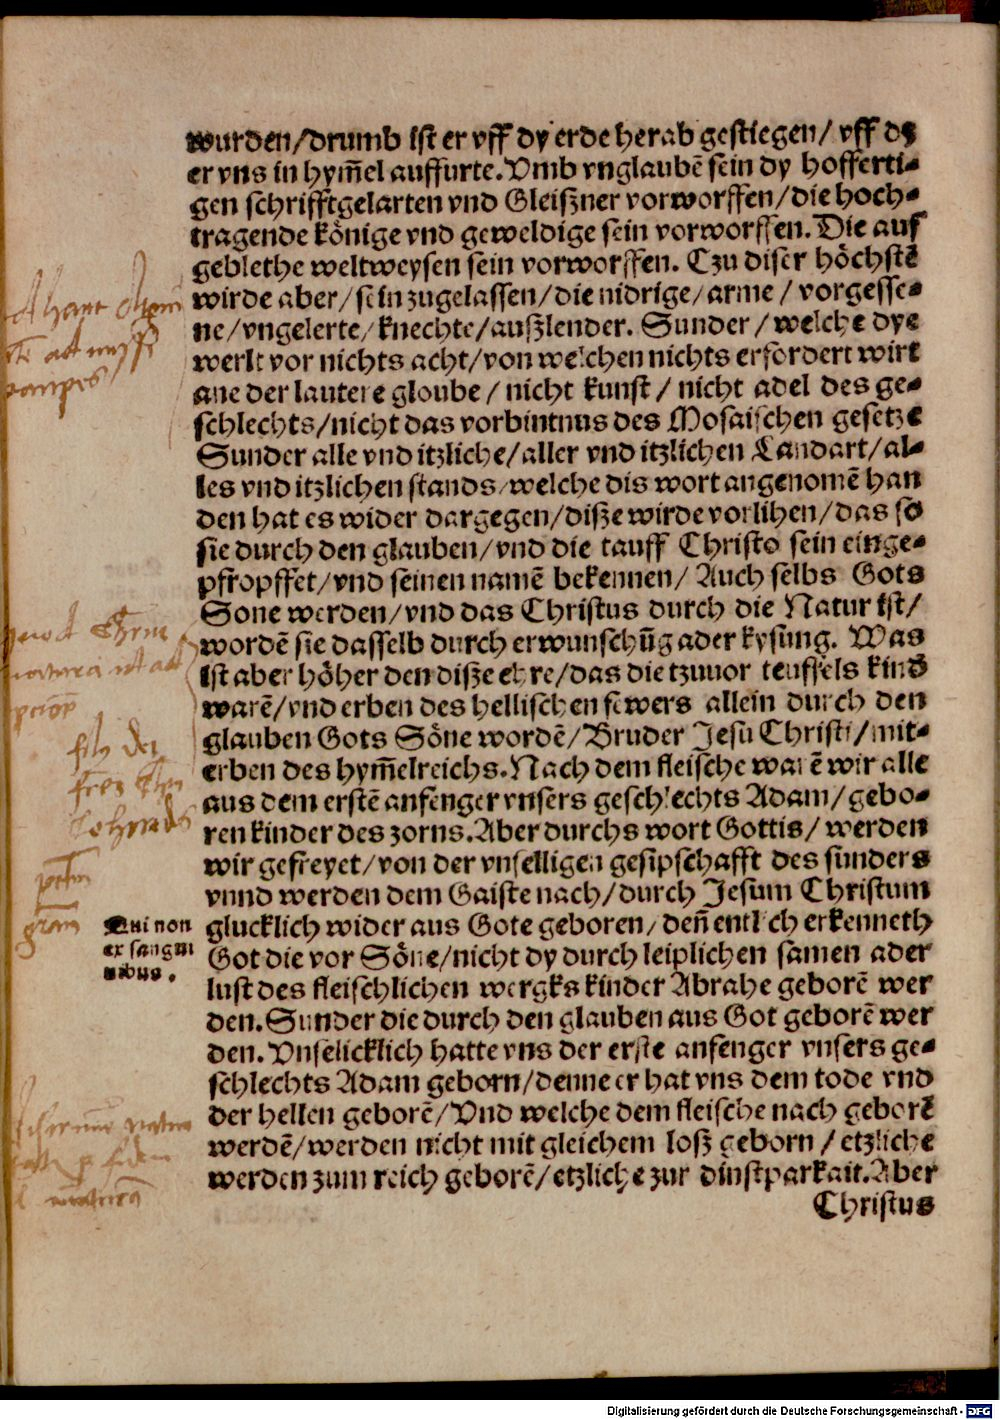 wurden/drumb ist er vff dy erde herab gestiegen/ vff dz
er vns in hym̄el auffurte. Vmb vnglaubē sein dy hofferti-
gen schrifftgelarten vnd Gleißner vorworffen/die hoch-
tragende könige vnd geweldige sein vorworffen. Die auf
geblethe weltweysen sein vorworffen. Czu diser höchstē
wirde aber/sein zugelassen/die nidrige/arme/ vorgesse-
ne/vngelerte/knechte/außlender. Sunder/welche dye
werlt vor nichts acht/von welchen nichts erfordert wirt
ane der lautere gloube/ nicht kunst/ nicht adel des ge-
schlechts/nicht das vorbintnus des Mosaischen gesetze
Sunder alle vnd itzliche/aller vnd itzlichen Landart/al-
les vnd itzlichen stands/welche dis wort angenomē han
den hat es wider dargegen/diße wirde vorlihen/das so
sie durch den glauben/vnd die tauff Christo sein einge-
pfropffet/vnd seinen namē bekennen/ Auch selbs Gots
Sone werden/vnd das Christus durch die Natur ist/
wordē sie dasselb durch erwunschūg ader kysung. Was
ist aber höher den diße ehre/das die tzuuor teuffels kind
warē/vnd erben des hellischen fewers allein durch den
glauben Gots Söne wordē/Bruder Jesu Christi/mit-
erben des hym̄elreichs. Nach dem fleische warē wir alle
aus dem erstē anfenger vnsers geschlechts Adam/gebo-
ren kinder des zorns. Aber durchs wort Gottis/werden
wir gefreyet/von der vnselligen gesipschafft des sunders
vnnd werden dem Gaiste nach/durch Jesum Christum
Qui non
ex sangui
nibus.
glucklich wider aus Gote geboren/ den̄ entlich erkenneth
Got die vor Söne/nicht dy durch leiplichen samen ader
lust des fleischlichen wergks kinder Abrahe geborē wer
den. Sunder die durch den glauben aus Got geborē wer
den. Vnselicklich hatte vns der erste anfenger vnsers ge-
schlechts Adam geborn/denne er hat vns dem tode vnd
der hellen geborē/Vnd welche dem fleische nach geborē
werdē/werden nicht mit gleichem loß geborn/etzliche
werden zum reich geborē/etzliche zur dinstparkait. Aber
Christus
Digitalisierung gefördert durch die Deutsche Forschungsgemeinschaft - DFG